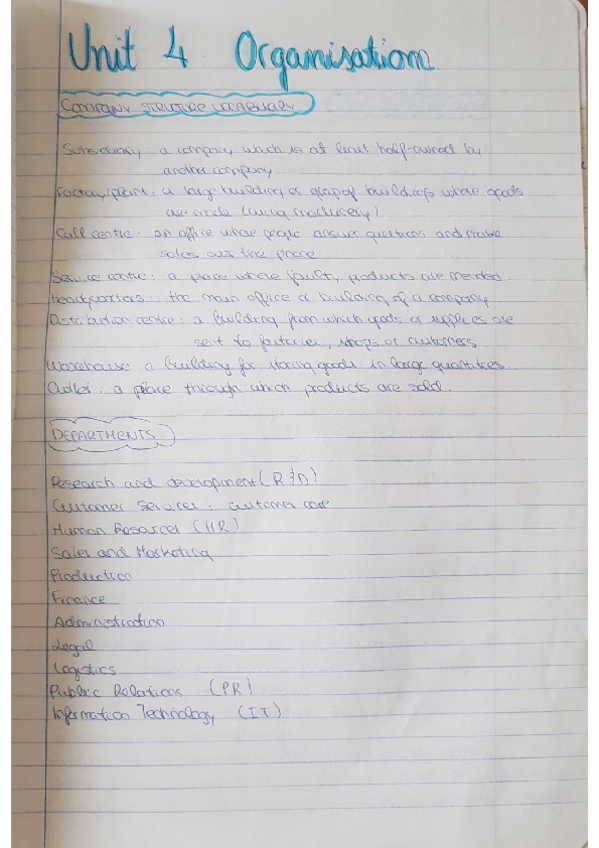 Unit 4 Organisation
Company structure vocabulary
Subsidiary: a company which is at least half-owned by
another company
Factory/plant: a large building or group of buildings where goods
are made (using machinery)
Call centre: an office where people answer questions and make
sales over the phone
Service centre: a place where faulty products are mended
Headquarters: the main office or building of a company
Distribution centre: a building from which goods or supplies are
sent to factories, shops or customers
Warehouse: a building for storing goods in large quantities
Outlet: a place through which products are sold.
DEPARTMENTS
Research and development (R&D)
Customer Services: customer care
Human Resources (HR)
Sales and Marketing
Production
Finance
Administration
Legal
Logistics
Public Relations (PR)
Information Technology (IT)